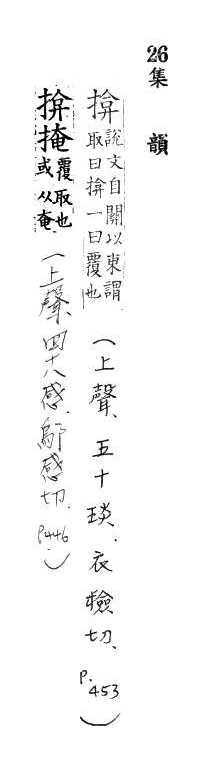 26集 韻
揜 說文自關以東謂取曰揜一曰覆也(上聲、五十琰、衣檢切、P.453)
揜掩 覆取也或从奄(上聲、四十八感、鄔感切、P.446)